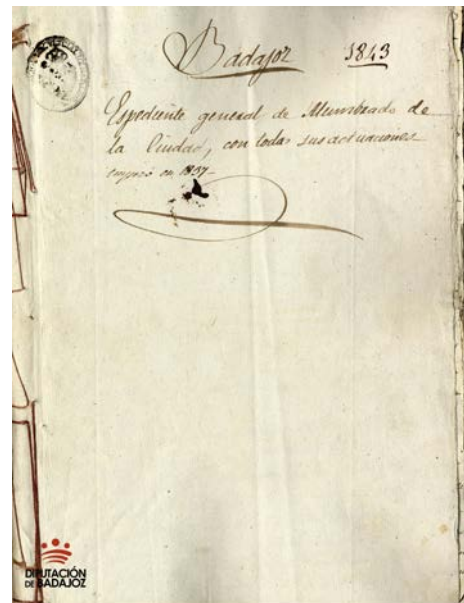 Badajoz 1843
Espediente general de Alumbrado de
la Ciudad, con todas sus actuaciones
empezó en 1837
DIPUTACIÓN
DE BADAJOZ